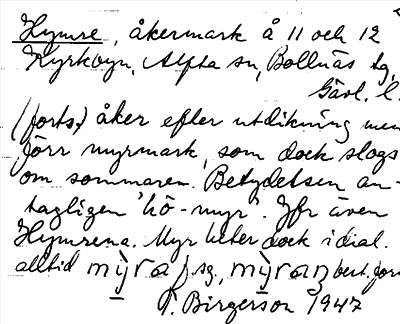 Hymre, åkermark å 11 och 12
Kyrkbyn, Alfta sn, Bollnäs tg,
Gävl. l.
(forts.) åker efter utdikning men
förr myrmark, som dock slogs
om sommaren. Betydelsen an-
tagligen 'hö-myr'. Jfr även
Hymrena. Myr heter dock i dial.
alltid mỳra f sg., mỳran best. form
T. Birgerson 1947